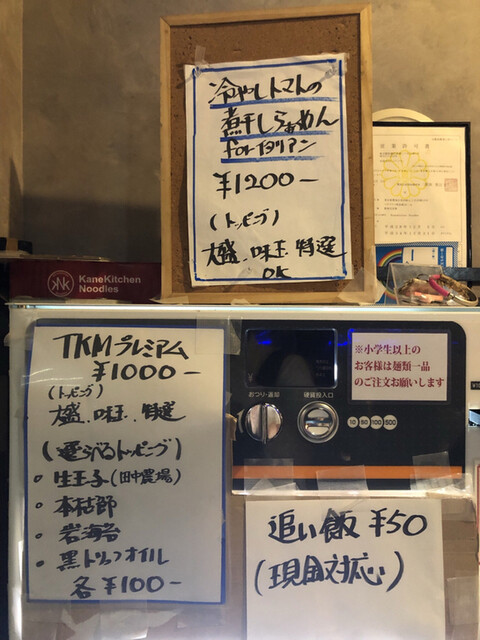 冷やしトマトの
煮干しらぁめん
forイタリアン
¥1200-
(トッピング)
大盛、味玉、特選
OK
KaneKitchen
Noodles
TKMプレミアム
¥1000-
(トッピング)
大盛、味玉、特選
(選べるトッピング)
・生玉子(田中農場)
・本枯節
・岩海苔
・黒トリュフオイル
各¥100-
※小学生以上の
お客様は麺類一品
のご注文お願いします
おつり・返却
硬貨投入口
10 50 100 500
追い飯 ¥50
(現金対応)